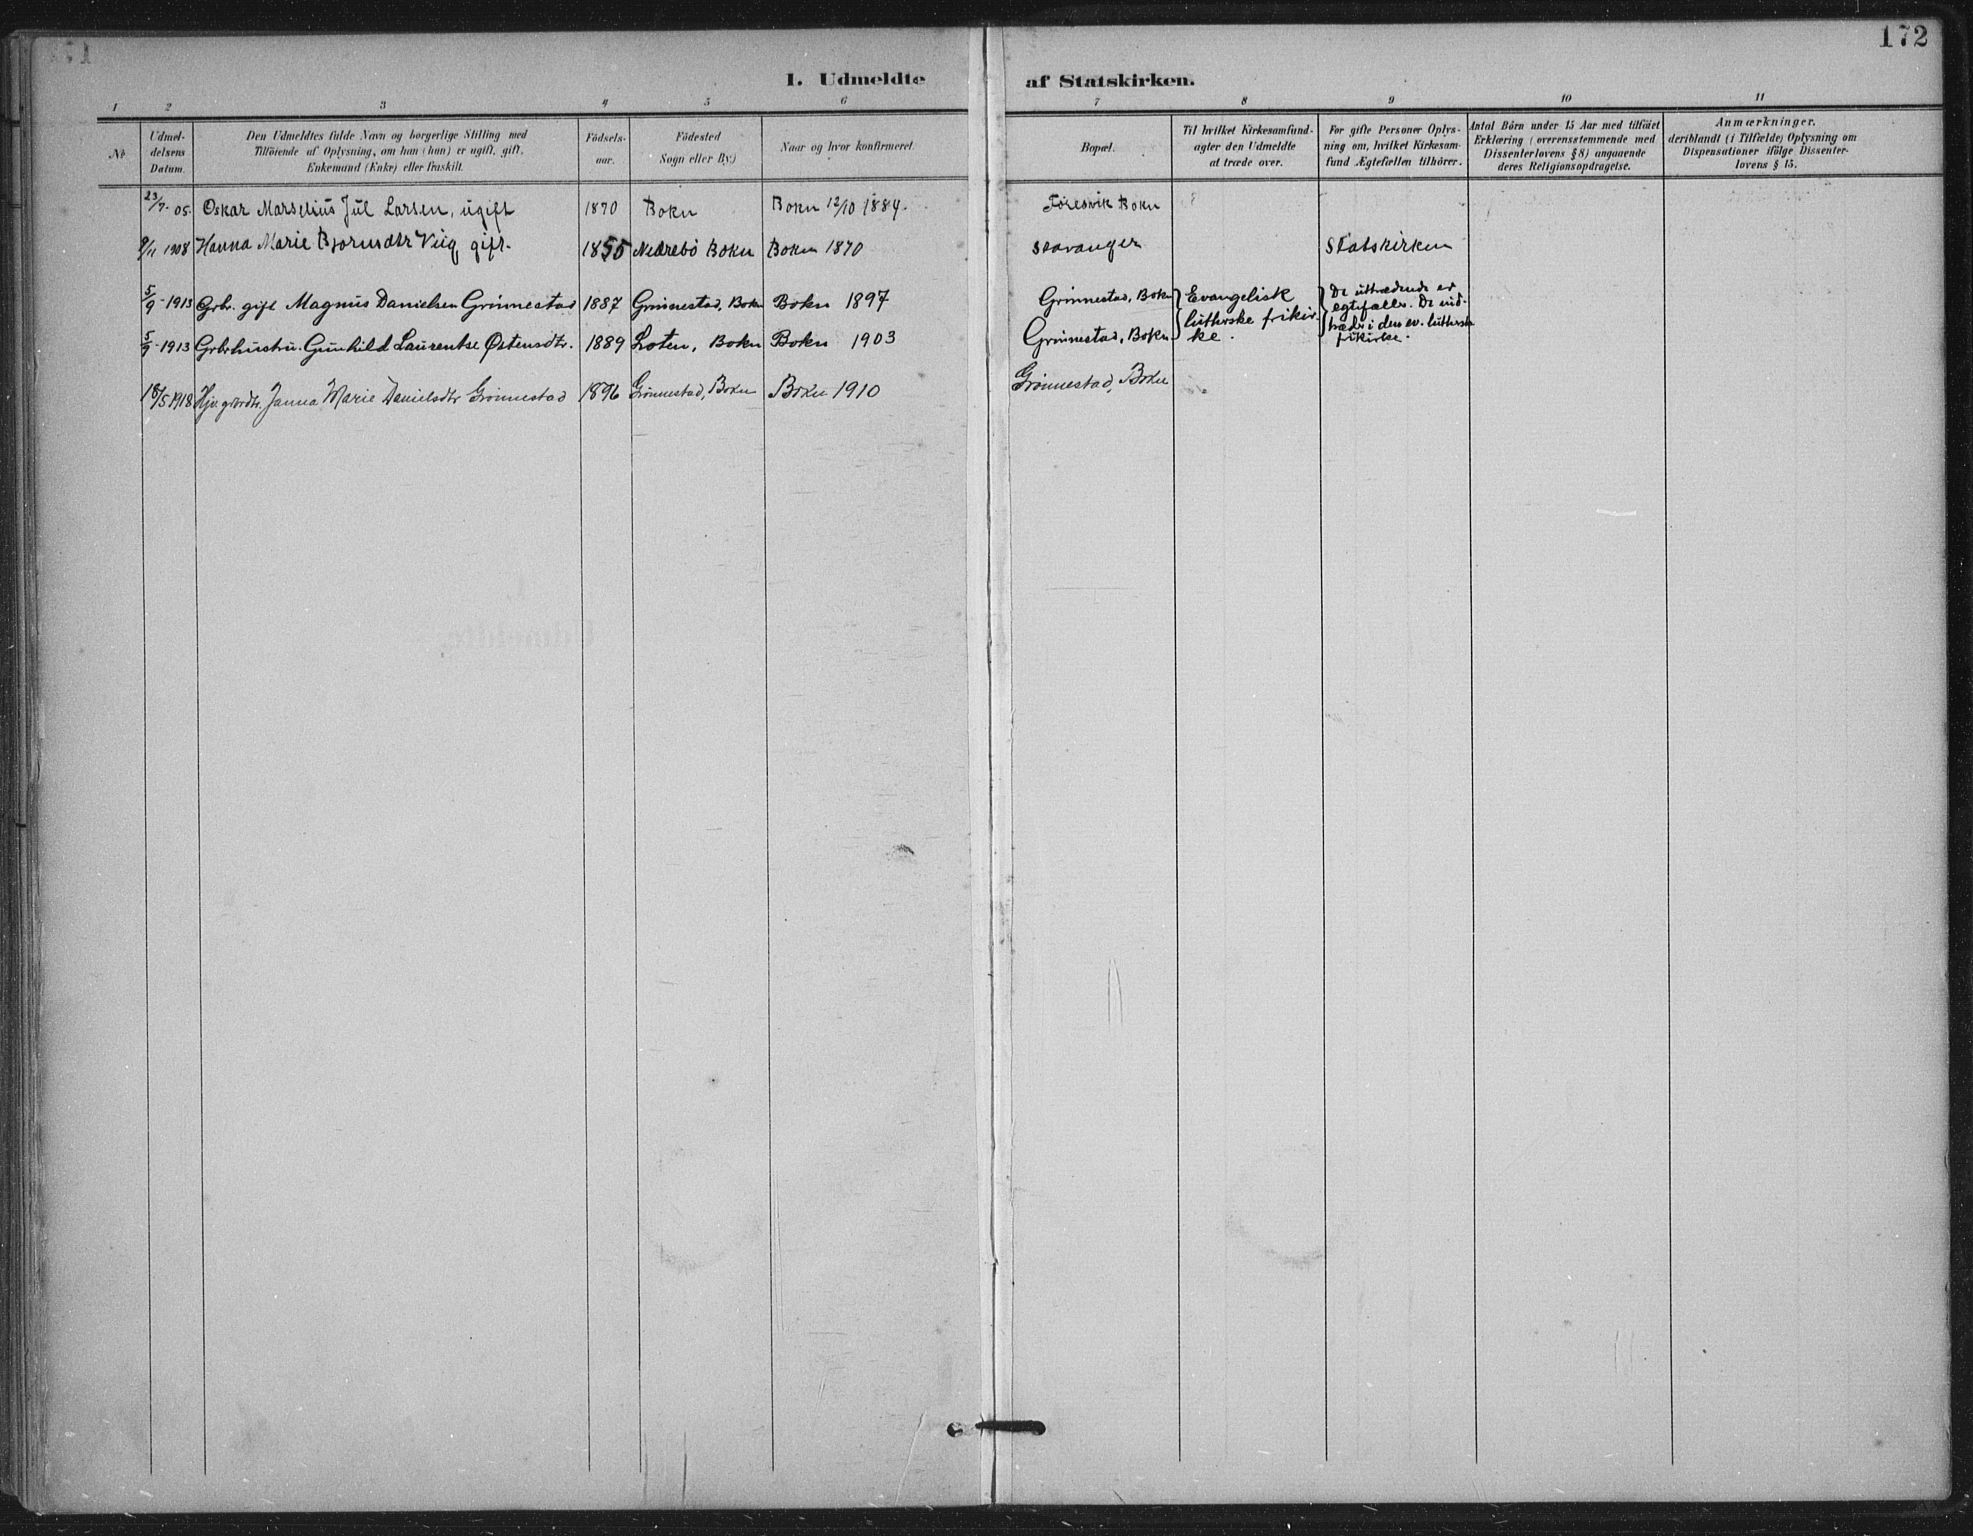 172
1. Udmeldte af Statskirken.
1 2 3 4 5 6 7 8 9 10 11
No
Udmel-
delsens
Datum.
Den Udmeldtes fulde Navn og borgerlige Stilling med
Tilföiende af Oplysning, om han (hun) er ugift, gift,
Enkemand (Enke) eller fraskilt.
Födsels-
aar.
Födested
Sogn eller By.)
Naar og hvor konfirmeret.
Bopæl.
Til hvilket Kirkesamfund-
agter den Udmeldte
at træde over.
For gifte Personer Oplys-
ning om, hvilket Kirkesam-
fund Ægtefællen tilhörer.
Antal Börn under 15 Aar med tilföiet
Erklæring (overensstemmende med
Dissenterlovens § 8) angaaende
deres Religionsopdragelse.
Anmærkninger,
deriblandt (i Tilfælde) Oplysning om
Dispensationer ifölge Dissenter-
lovens § 15.
23/7-05. Oskar Marselius Jul Larsen, ugift 1870 Bokn Bokn 12/10 1884. Föresvik Bokn
9/11 1908 Hanna Marie Bjornsdtr Veig, gift. 1855 Nedrebö Bokn Bokn 1870 Stavanger Statskirken
5/9-1913 Grbr. gift Magnus Danielsen Grönnestad 1887 Grönnestad, Bokn Bokn 1897 Grönnestad, Bokn
5/9-1913 Grbrhustru. Gunhild Laurentse Østensdtr. 1889 Loten, Bokn Bokn 1903 Grönnestad, Bokn
Evangelisk
lutherske frikir-
ke.
De uttrædende er
egtefæller. De ind-
træder i den ev. lutherske
frikirke.
18/5 1918 Hjv. grbrdtr. Janna Marie Danielsdtr Grönnestad 1896 Grönnestad, Bokn Bokn 1910 Grönnestad, Bokn